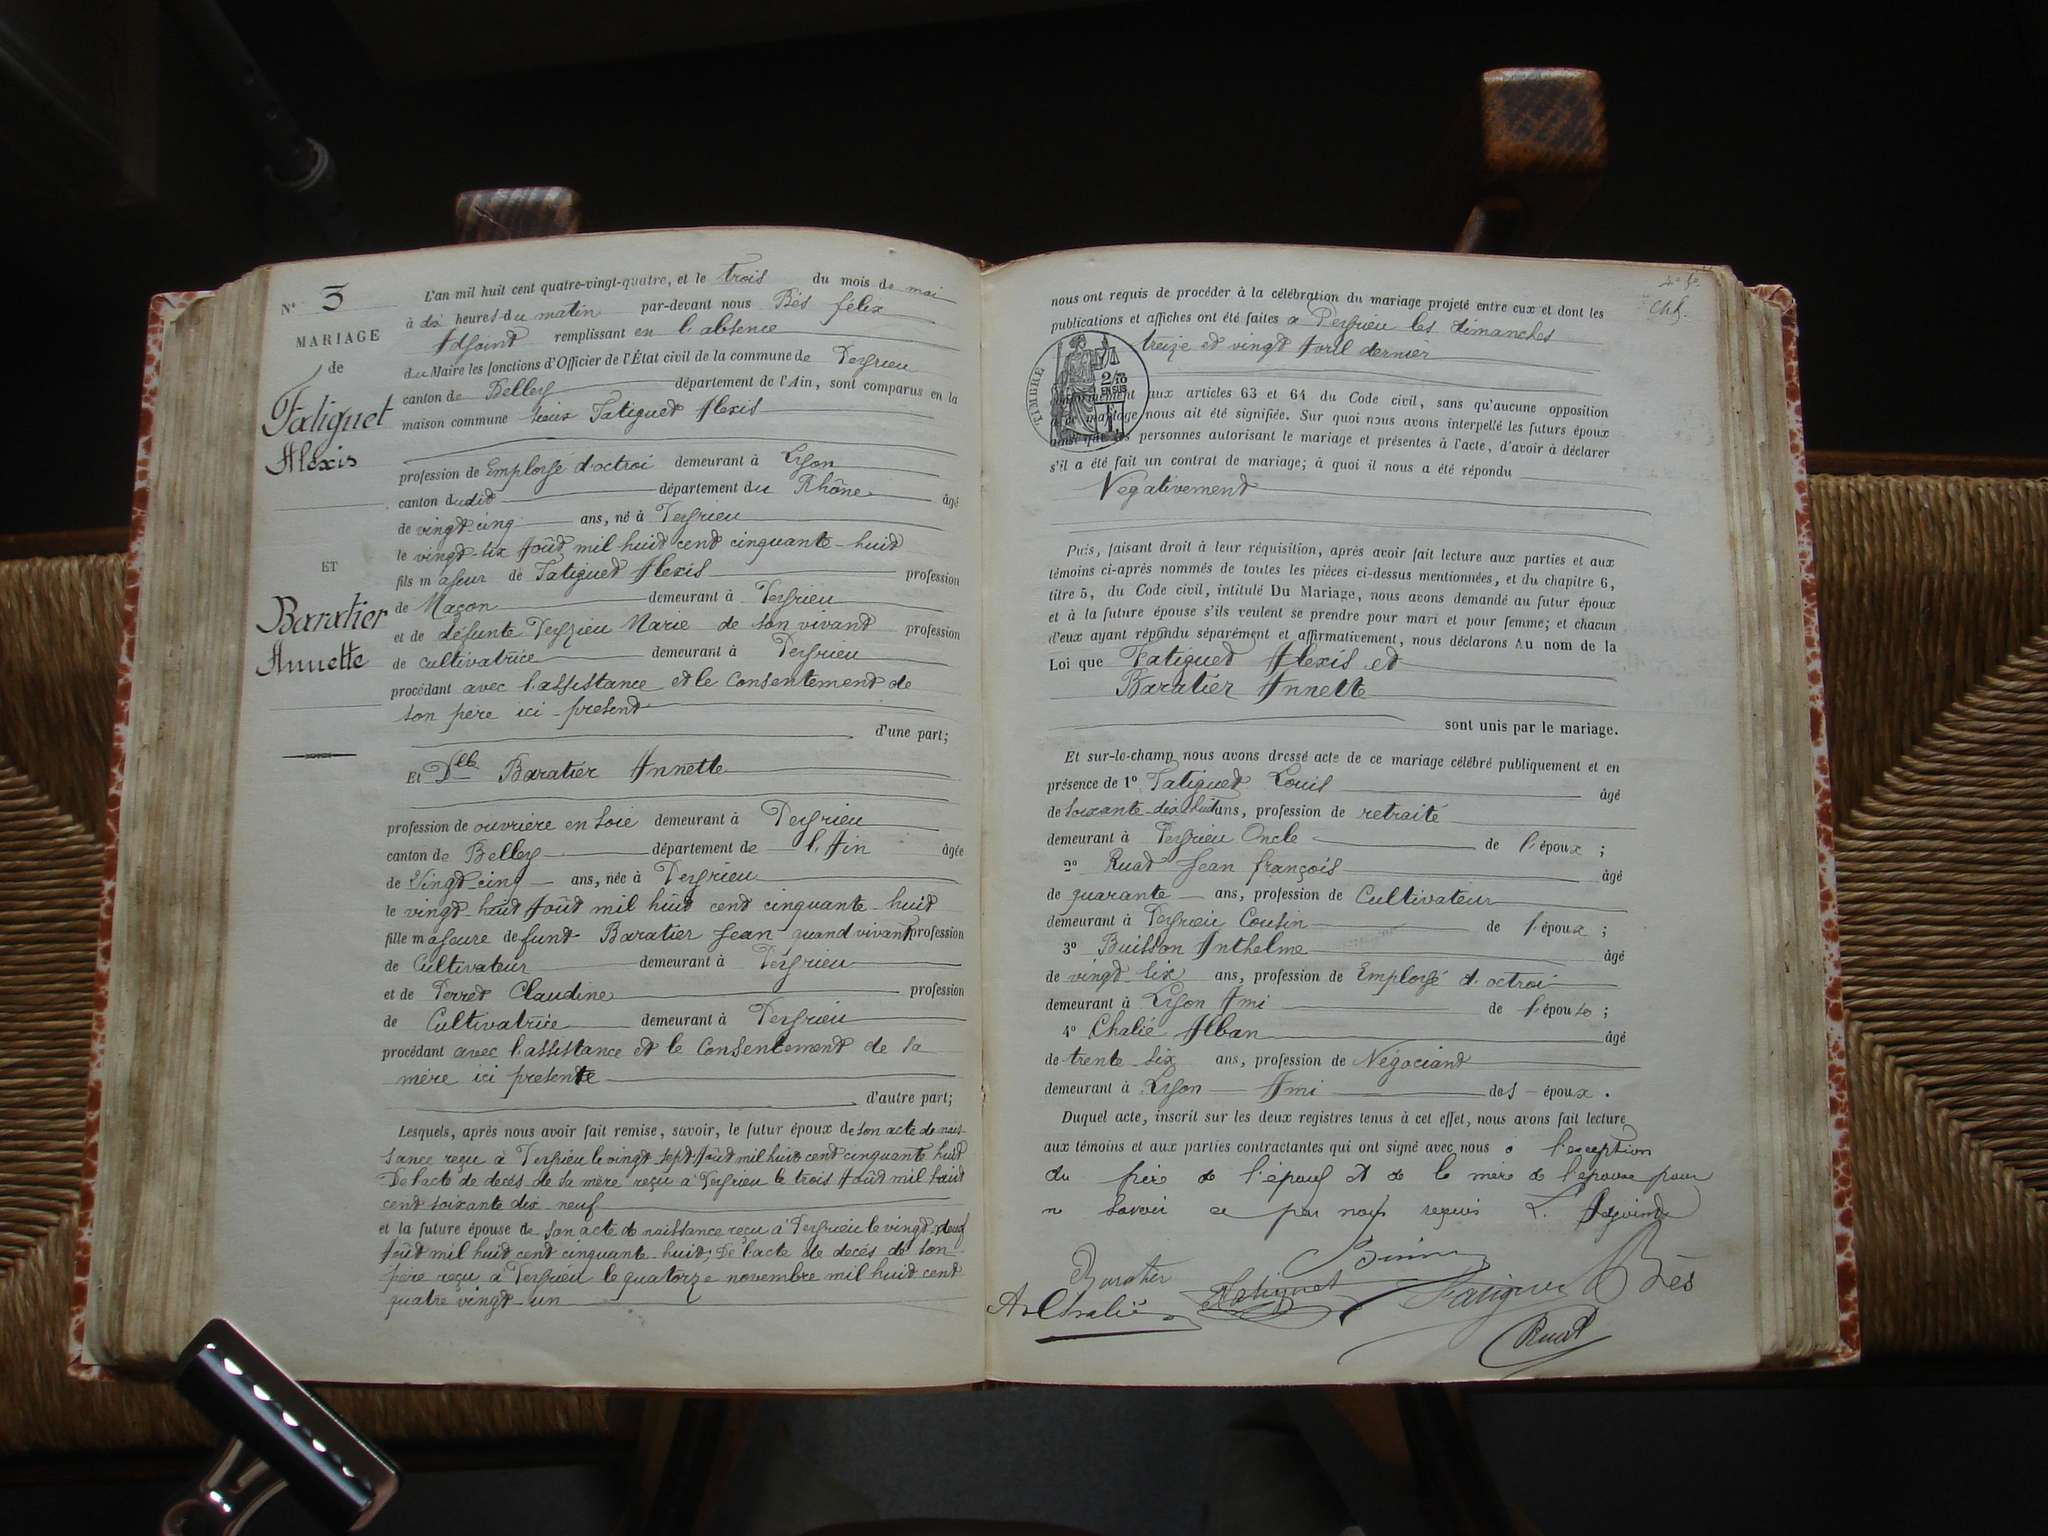 N° 3
MARIAGE
de
Fatiguet
Alexis
ET
Baratier
Annette
L'an mil huit cent quatre-vingt-quatre, et le trois du mois de mai
à dix heures du matin par-devant nous Bès félix
Adjoint remplissant en l'absence
du Maire les fonctions d'Officier de l'État civil de la commune de Peyrieu
canton de Belley département de l'Ain, sont comparus en la
maison commune sieur Fatiguet Alexis
profession de Employé d'octroi demeurant à Lyon
canton dudit département du Rhône âgé
de vingt-cinq ans, né à Peyrieu
le vingt-six Août mil huit cent cinquante-huit
fils majeur de Fatiguet Alexis profession
de Maçon demeurant à Peyrieu
et de défunte Peyzieu Marie de son vivant profession
de cultivatrice demeurant à Peyrieu
procédant avec l'assistance et le consentement de
son père ici présent
d'une part;
Et Dlle Baratier Annette
profession de ouvrière en soie demeurant à Peyrieu
canton de Belley département de l'Ain âgée
de Vingt-cinq ans, née à Peyrieu
le vingt-huit Août mil huit cent cinquante-huit
fille majeure defunt Baratier Jean quand vivant profession
de Cultivateur demeurant à Peyrieu
et de Perret Claudine profession
de Cultivatrice demeurant à Peyrieu
procédant avec l'assistance et le Consentement de sa
mère ici présente
d'autre part;
Lesquels, après nous avoir fait remise, savoir, le futur époux de son acte de nais-
sance reçu à Peyrieu le vingt sept Août mil huit cent cinquante huit
De l'acte de decès de sa mère reçu à Peyrieu le trois Août mil huit
cent soixante dix neuf
et la future épouse de son acte de naissance reçu à Peyrieu le vingt-neuf
Août mil huit cent cinquante-huit; De l'acte de decès de son
père reçu à Peyrieu le quatorze novembre mil huit cent
quatre vingt-un
nous ont requis de procéder à la célébration du mariage projeté entre eux et dont les
publications et affiches ont été faites à Peyrieu les dimanches
treize et vingt Avril dernier
TIMBRE
2/10
EN SUS
conformément aux articles 63 et 64 du Code civil, sans qu'aucune opposition
à ce mariage nous ait été signifiée. Sur quoi nous avons interpellé les futurs époux
ainsi que les personnes autorisant le mariage et présentes à l'acte, d'avoir à déclarer
s'il a été fait un contrat de mariage; à quoi il nous a été répondu
Négativement
Puis, faisant droit à leur réquisition, après avoir fait lecture aux parties et aux
témoins ci-après nommés de toutes les pièces ci-dessus mentionnées, et du chapitre 6,
titre 5, du Code civil, intitulé Du Mariage, nous avons demandé au futur époux
et à la future épouse s'ils veulent se prendre pour mari et pour femme; et chacun
d'eux ayant répondu séparément et affirmativement, nous déclarons Au nom de la
Loi que Fatiguet Alexis et
Baratier Annette
sont unis par le mariage.
Et sur-le-champ nous avons dressé acte de ce mariage célébré publiquement et en
présence de 1° Fatiguet Louis âgé
de soixante-dix huit ans, profession de retraité
demeurant à Peyrieu Oncle de l'époux ;
2° Ruat Jean françois âgé
de quarante ans, profession de Cultivateur
demeurant à Peyrieu Cousin de l'époux ;
3° Buisson Anthelme âgé
de vingt-six ans, profession de Employé d'octroi
demeurant à Lyon Ami de l'époux ;
4° Chalié Alban âgé
de trente-six ans, profession de Négociant
demeurant à Lyon Ami des époux.
Duquel acte, inscrit sur les deux registres tenus à cet effet, nous avons fait lecture
aux témoins et aux parties contractantes qui ont signé avec nous à l'exception
du père de l'époux et de la mère de l'épouse pour
ne savoir ce par nous requis L. Adjoint
Baratier
A. Chalié Fatiguet Fatiguet Bès
Ruat